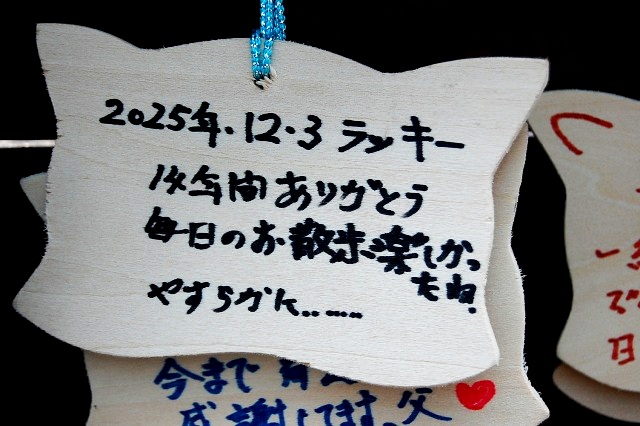 2025年.12.3 ラッキー
14年間ありがとう
毎日のお散歩楽しかっ
たね.
やすらかに......
今まで
感謝してます。父
で
日